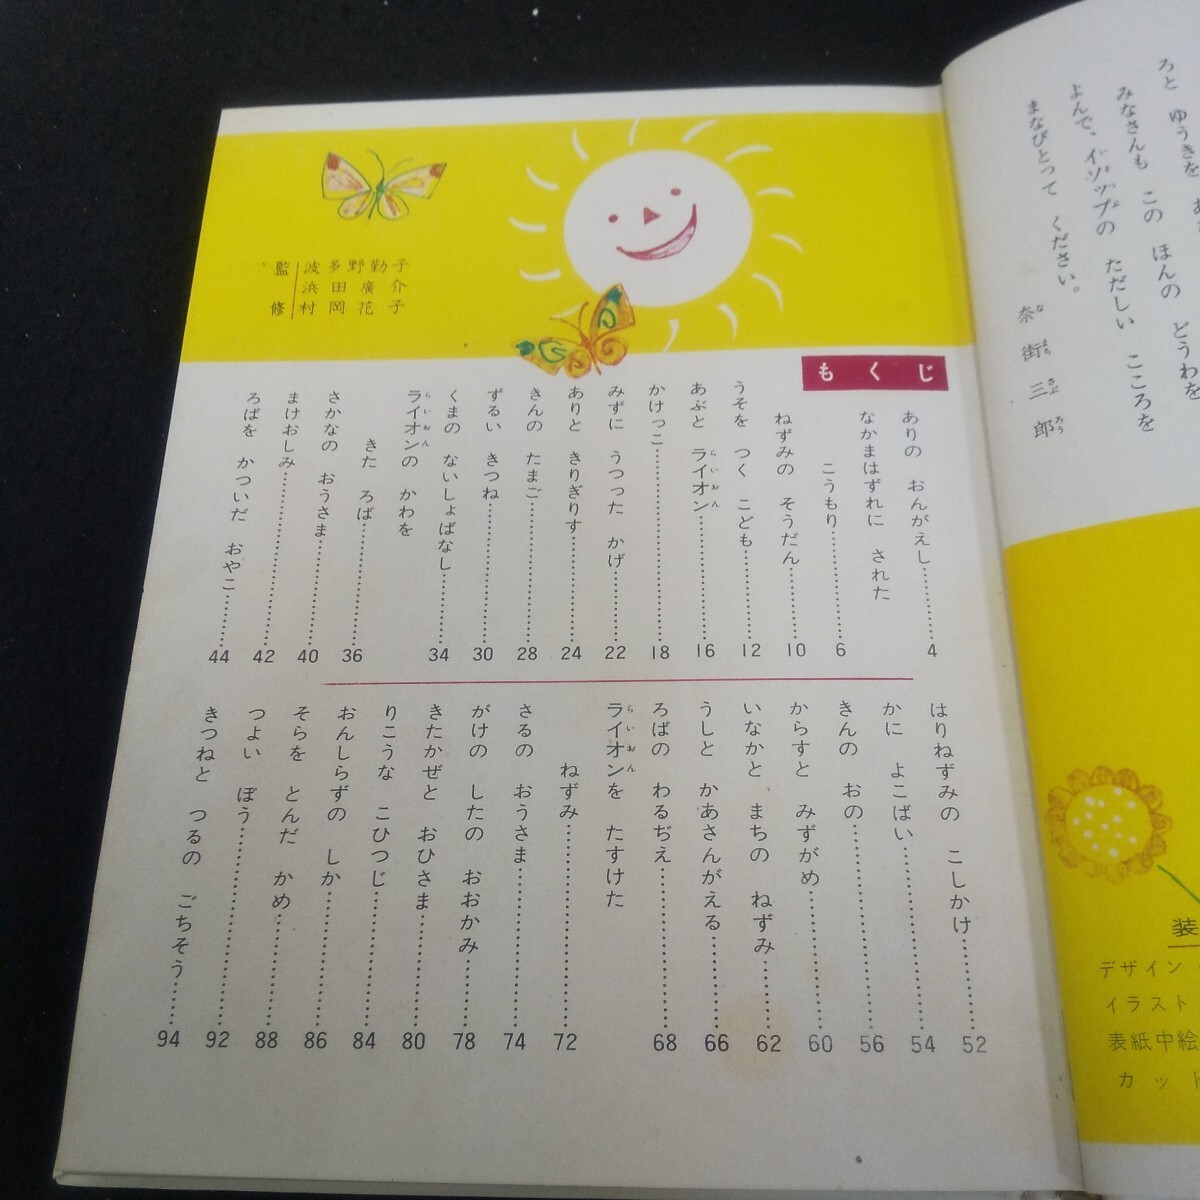 ろと ゆうきを
みなさんも この ほんの どうわを
よんで、イソップの ただしい こころを
まなびとって ください。
奈街三郎
監修
波多野勤子
浜田廣介
村岡花子
もくじ
ありの おんがえし………4
なかまはずれに された
こうもり………6
ねずみの そうだん………10
うそを つく こども………12
あぶと ライオン………16
かけっこ………18
みずに うつった かげ………22
ありと きりぎりす………24
きんの たまご………28
ずるい きつね………30
くまの ないしょばなし………34
ライオンの かわを
きた ろば………36
さかなの おうさま………40
まけおしみ………42
ろばを かついだ おやこ………44
はりねずみの こしかけ………52
かに よこばい………54
きんの おの………56
からすと みずがめ………60
いなかと まちの ねずみ………62
うしと かあさんがえる………66
ろばの わるぢえ………68
ライオンを たすけた
ねずみ………72
さるの おうさま………74
がけの したの おおかみ………78
きたかぜと おひさま………80
りこうな こひつじ………84
おんしらずの しか………86
そらを とんだ かめ………88
つよい ぼう………92
きつねと つるの ごちそう………94
装
デザイン
イラスト
表紙中絵
カット